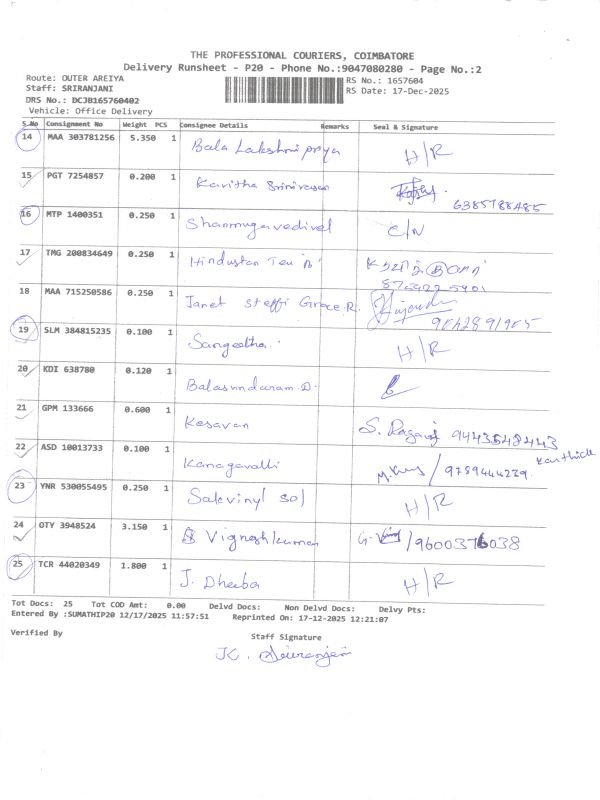 THE PROFESSIONAL COURIERS, COIMBATORE
Delivery Runsheet - P20 - Phone No.:9047080280 - Page No.:2
Route: OUTER AREIYA RS No.: 1657604
Staff: SRIRANJANI RS Date: 17-Dec-2025
DRS No.: DCJB165760402
Vehicle: Office Delivery
S.No Consignment No Weight PCS Consignee Details Remarks Seal & Signature
14 MAA 303781256 5.350 1 Bala Lakshmi priya H/R
15 PGT 7254857 0.200 1 Kavitha Srinivasan 6385788485
16 MTP 1400351 0.250 1 Shanmugavedivel C/N
17 TMG 200834649 0.250 1 Hindustan Tea
18 MAA 715250586 0.250 1 Janet Steffi Grace.R.
19 SLM 384815235 0.100 1 Sangeetha. H/R
20 KDI 638780 0.120 1 Balasundaram.D.
21 GPM 133666 0.600 1 Kesavan S.
22 ASD 10013733 0.100 1 Kanagavalli
23 YNR 530055495 0.250 1 Sakvinyl Sol H/R
24 OTY 3948524 3.150 1 Vigneshkumar G. /9600376038
25 TCR 44020349 1.800 1 J. Dheeba H/R
Tot Docs: 25 Tot COD Amt: 0.00 Delvd Docs: Non Delvd Docs: Delvy Pts:
Entered By :SUMATHIP20 12/17/2025 11:57:51 Reprinted On: 17-12-2025 12:21:07
Verified By Staff Signature